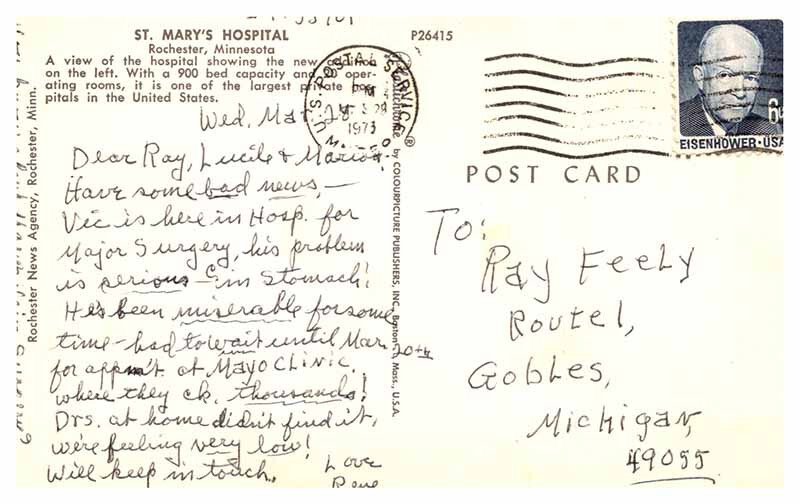 ST. MARY'S HOSPITAL
Rochester, Minnesota
A view of the hospital showing the new addition
on the left. With a 900 bed capacity and oper-
ating rooms, it is one of the largest private hos-
pitals in the United States.
P26415
Wed. Mar. 28
Dear Ray, Lucile & Marion.
Have some bad news, —
Vic is here in Hosp. for
Major Surgery, his problem
is serious - in Stomach!
He's been miserable for some
time - had to wait until Mar. 20th
for appm't. at MAYO CLINIC.
where they ck. thousands!
Drs. at home didn't find it,
we're feeling very low!
Will keep in touch.
Love
Rochester News Agency, Rochester, Minn.
by COLOURPICTURE PUBLISHERS, INC., Boston, Mass., U.S.A.
U.S. POSTAL SERVICE
PM
28
1973
6¢
EISENHOWER·USA
POST CARD
To:
Ray Feely
Route 1,
Gobles,
Michigan,
49055